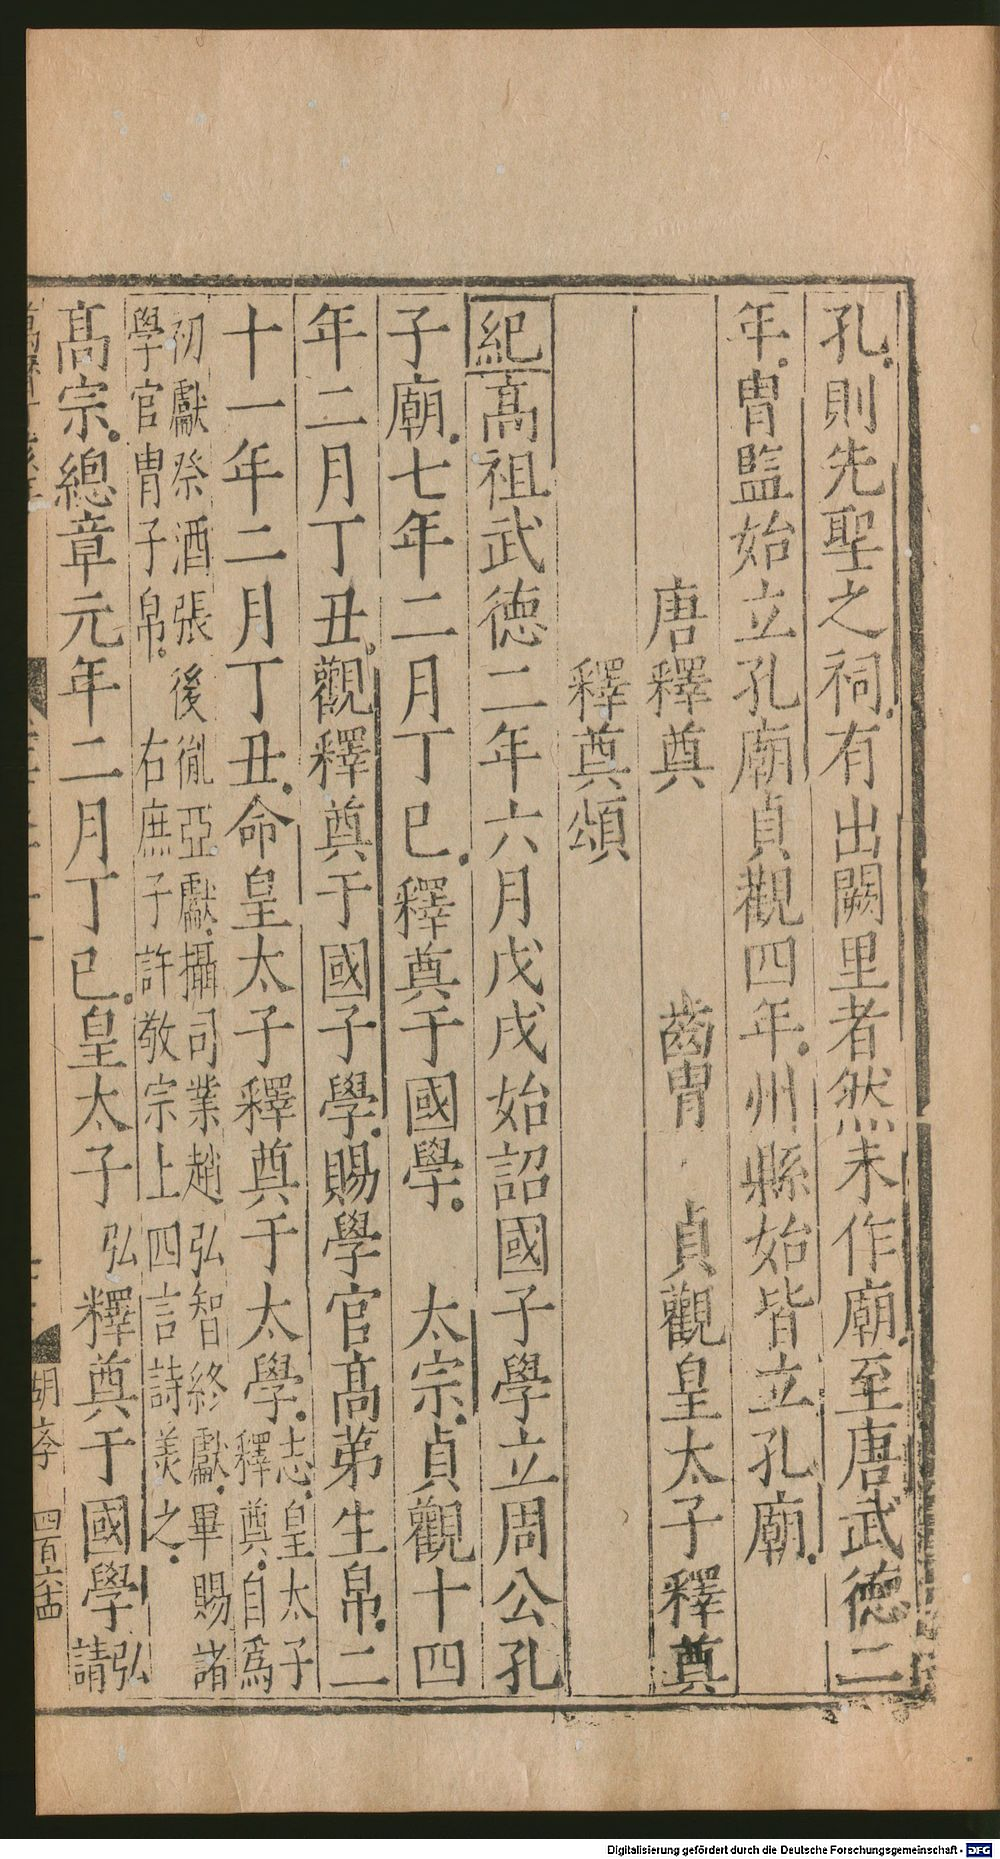 孔則先聖之祠有出闕里者然未作廟至唐武德二
年冑監始立孔廟貞觀四年州縣始皆立孔廟
唐釋奠　齒冑　貞觀皇太子釋奠
釋奠頌
紀高祖武德二年六月戊戌始詔國子學立周公孔
子廟七年二月丁巳釋奠于國學　太宗貞觀十四
年二月丁丑觀釋奠于國子學賜學官高第生帛二
十一年二月丁丑命皇太子釋奠于太學志皇太子
釋奠自爲
初獻祭酒張後胤亞獻攝司業趙弘智終獻畢賜諸
學官冑子帛　右庶子許敬宗上四言詩美之
高宗總章元年二月丁巳皇太子弘釋奠于國學弘
請
胡李　四百六十四
Digitalisierung gefördert durch die Deutsche Forschungsgemeinschaft - DFG